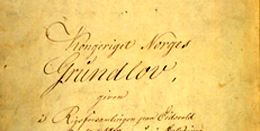 Kongeriget Norges
Grundlov,
given
i Rigsforsamlingen paa Eidsvold